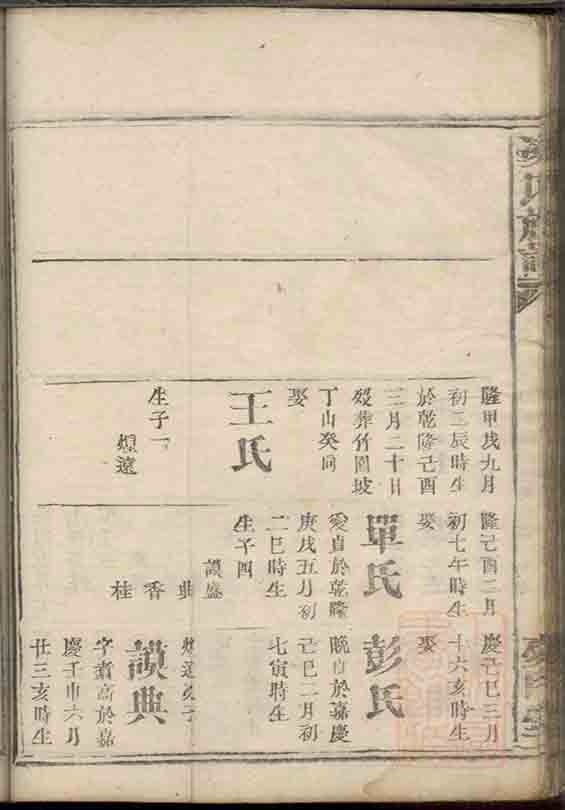 隆甲戌九月
初二辰時生
於乾隆己酉
三月二十日
歿葬竹園坡
丁山癸向
娶
王氏
生子一
煌遠
隆己酉二月
初七午時生
娶
單氏
愛貞於乾隆
庚戌五月初
二巳時生
生子四
謨盛
典
香
桂
慶己巳三月
十六亥時生
娶
彭氏
晚貞於嘉慶
己巳二月初
七寅時生
煌遠次子
謨典
字書高於嘉
慶壬申六月
廿三亥時生